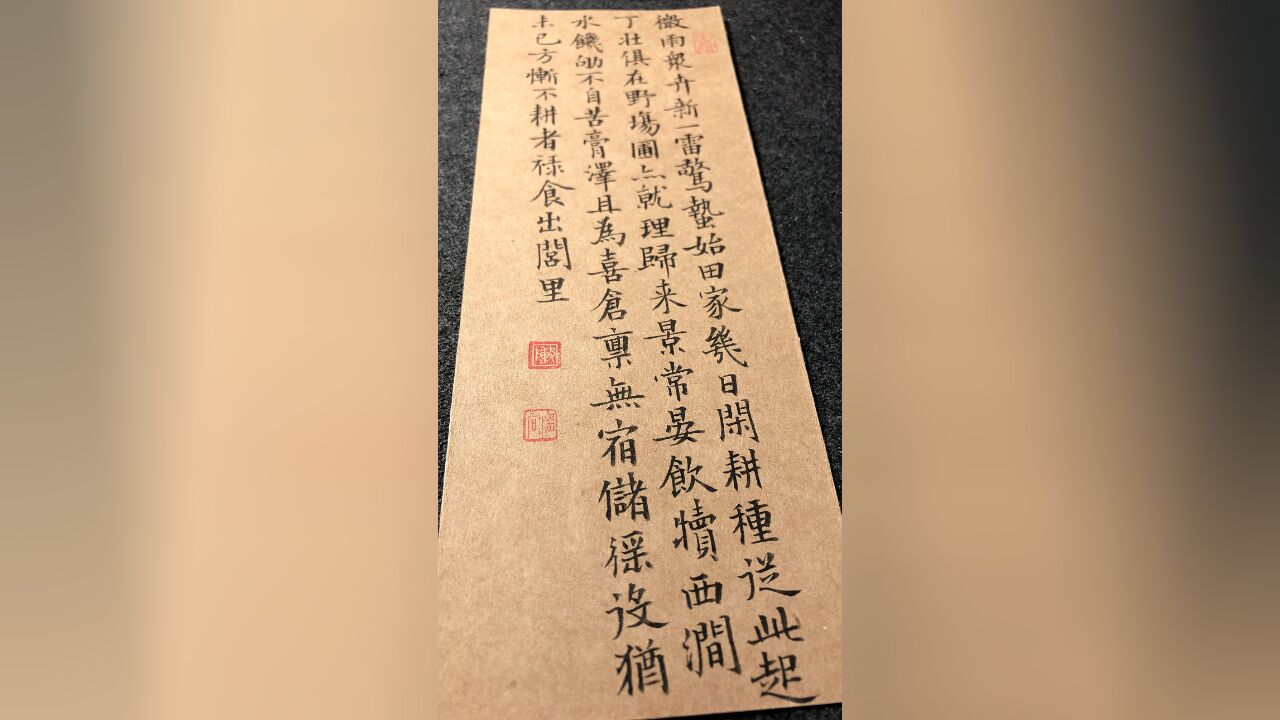 微雨衆卉新一雷驚蟄始田家幾日閑耕種從此起
丁壯俱在野場圃亦就理歸来景常晏飲犢西澗
水饑劬不自苦膏澤且為喜倉稟無宿儲徭役猶
未已方慚不耕者禄食出閭里